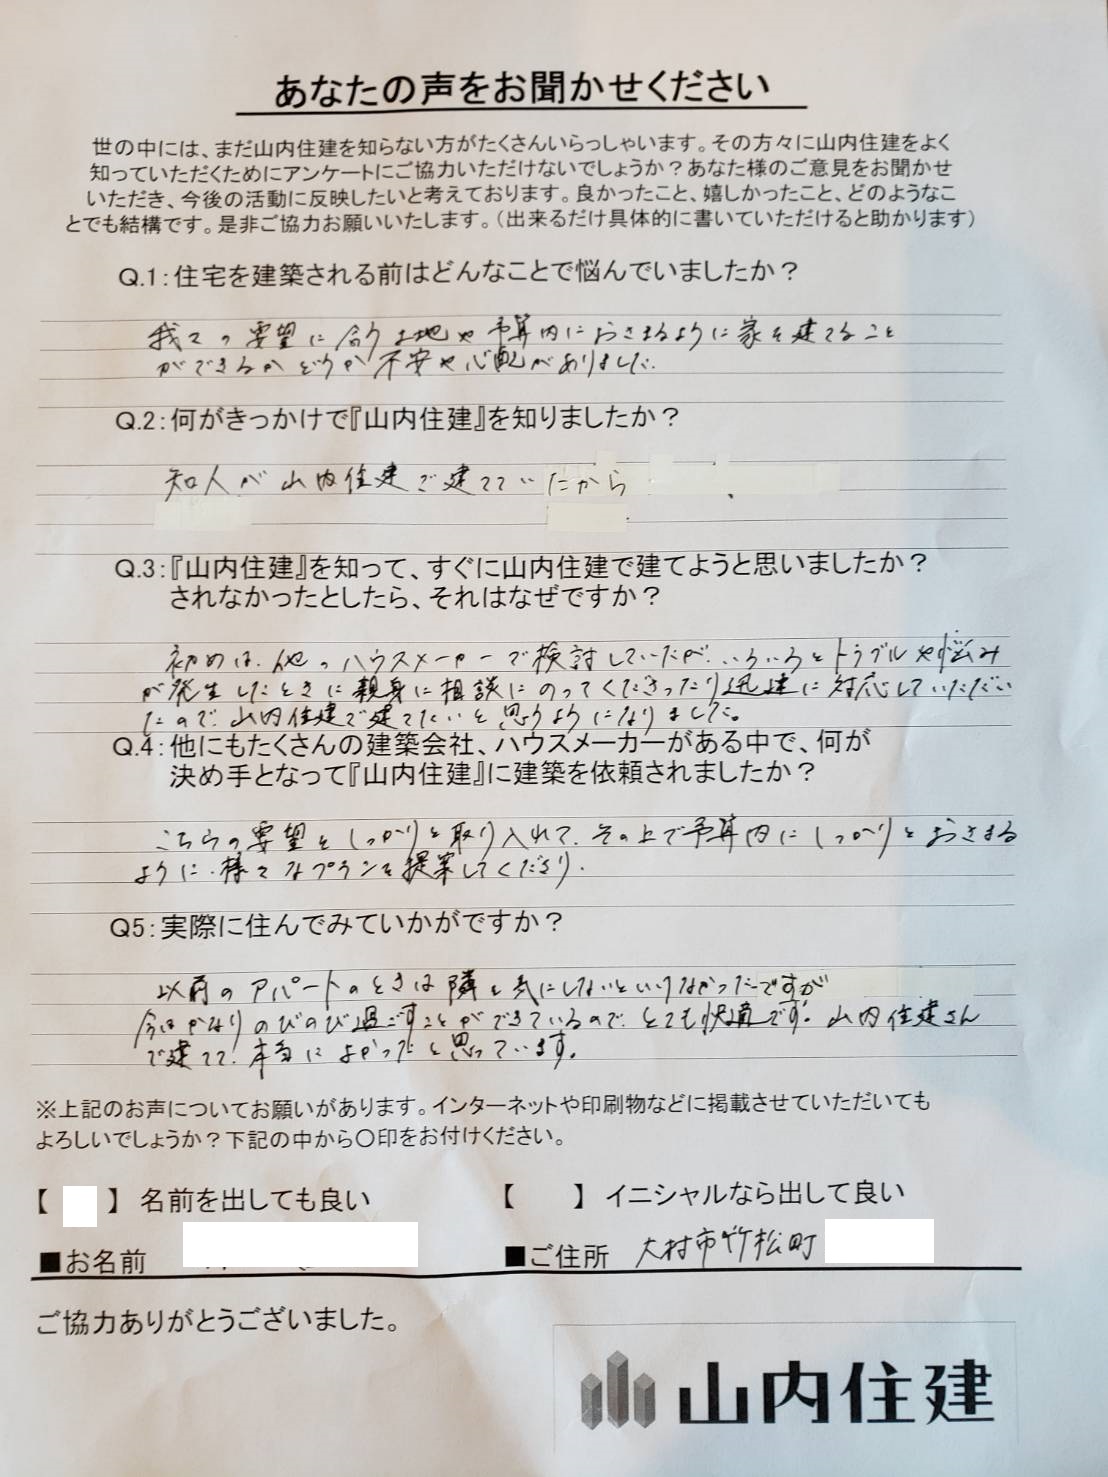 あなたの声をお聞かせください
世の中には、まだ山内住建を知らない方がたくさんいらっしゃいます。その方々に山内住建をよく
知っていただくためにアンケートにご協力いただけないでしょうか？あなた様のご意見をお聞かせ
いただき、今後の活動に反映したいと考えております。良かったこと、嬉しかったこと、どのようなこ
とでも結構です。是非ご協力お願いいたします。（出来るだけ具体的に書いていただけると助かります）
Q.1：住宅を建築される前はどんなことで悩んでいましたか？
我々の要望に合う土地や予算内におさまるように家を建てること
ができるかどうか不安や心配がありました。
Q.2：何がきっかけで『山内住建』を知りましたか？
知人が山内住建で建てていたから
Q.3：『山内住建』を知って、すぐに山内住建で建てようと思いましたか？
されなかったとしたら、それはなぜですか？
初めは、他のハウスメーカーで検討していたが、いろいろとトラブルや悩み
が発生したときに親身に相談にのってくださったり迅速に対応していただい
たので、山内住建で建てたいと思うようになりました。
Q.4：他にもたくさんの建築会社、ハウスメーカーがある中で、何が
決め手となって『山内住建』に建築を依頼されましたか？
こちらの要望をしっかりと取り入れて、その上で予算内にしっかりとおさまる
ように、様々なプランを提案してくださり、
Q5：実際に住んでみていかがですか？
以前のアパートのときは隣を気にしないといけなかったですが
今はかなりのびのび過ごすことができているので、とても快適です。山内住建さん
で建てて、本当によかったと思っています。
※上記のお声についてお願いがあります。インターネットや印刷物などに掲載させていただいても
よろしいでしょうか？下記の中から〇印をお付けください。
【 】 名前を出しても良い 【 】 イニシャルなら出して良い
■お名前 ■ご住所 大村市竹松町
ご協力ありがとうございました。
山内住建